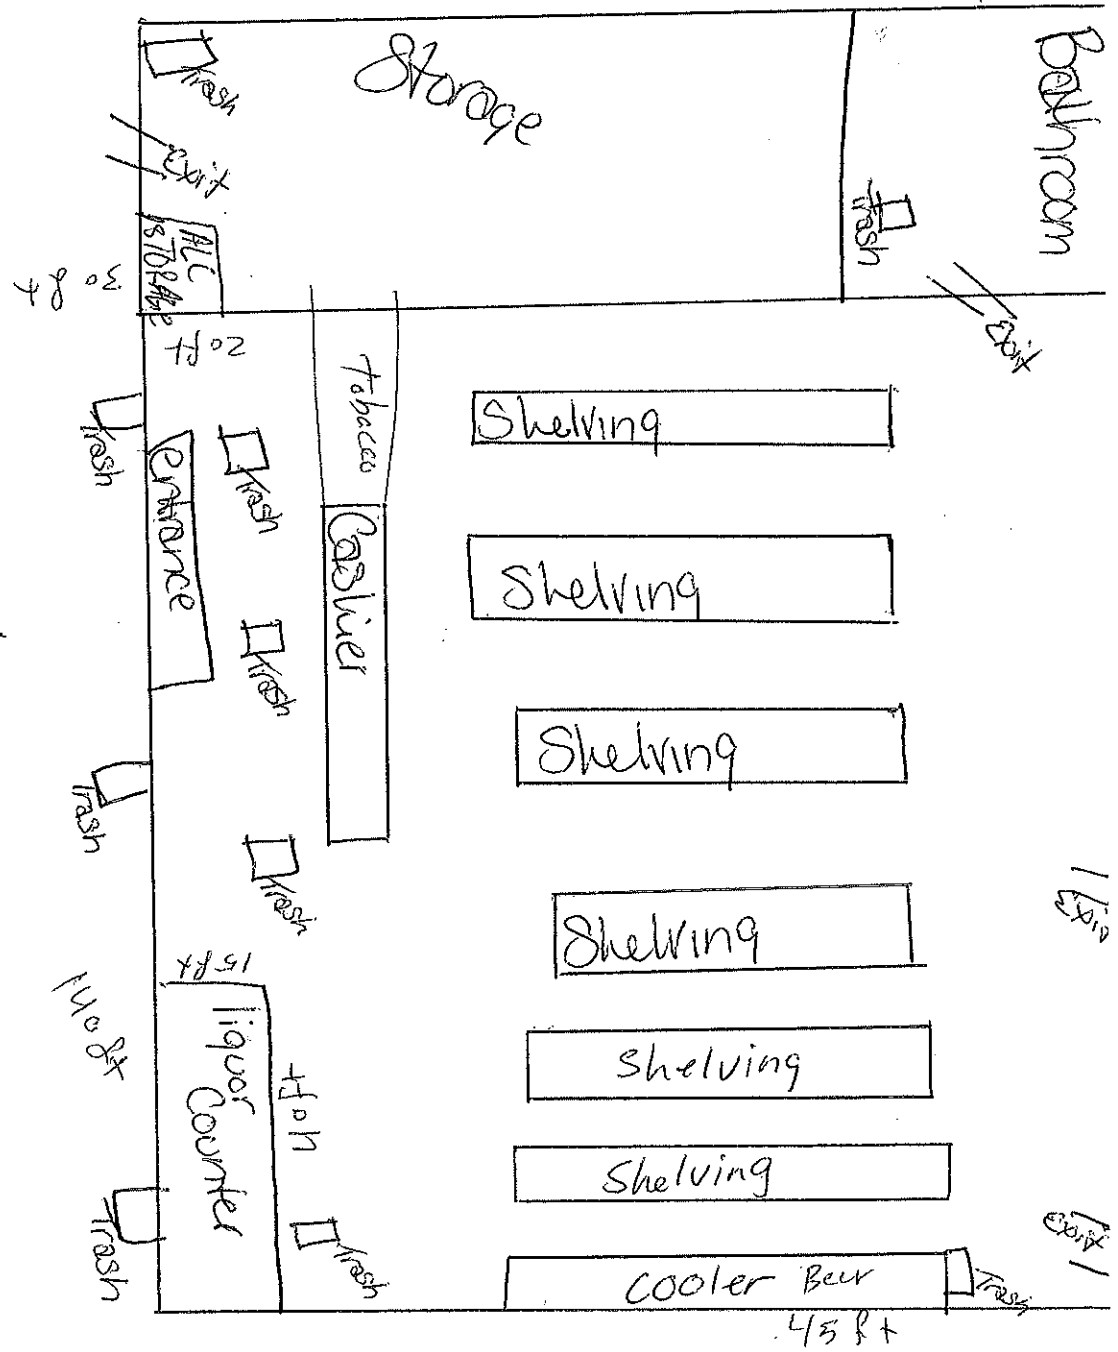 Storage
Bathroom
Trash
Exit
ALC
Storage
30 ft
20 ft
Trash
Exit
Tobacco
Shelving
Trash
entrance
Trash
Cashier
Shelving
Trash
Shelving
Trash
Trash
Shelving
Exit
15 ft
140 ft
liquor
Counter
40 ft
Shelving
Shelving
Trash
Trash
exit
Cooler Beer
Trash
45 ft